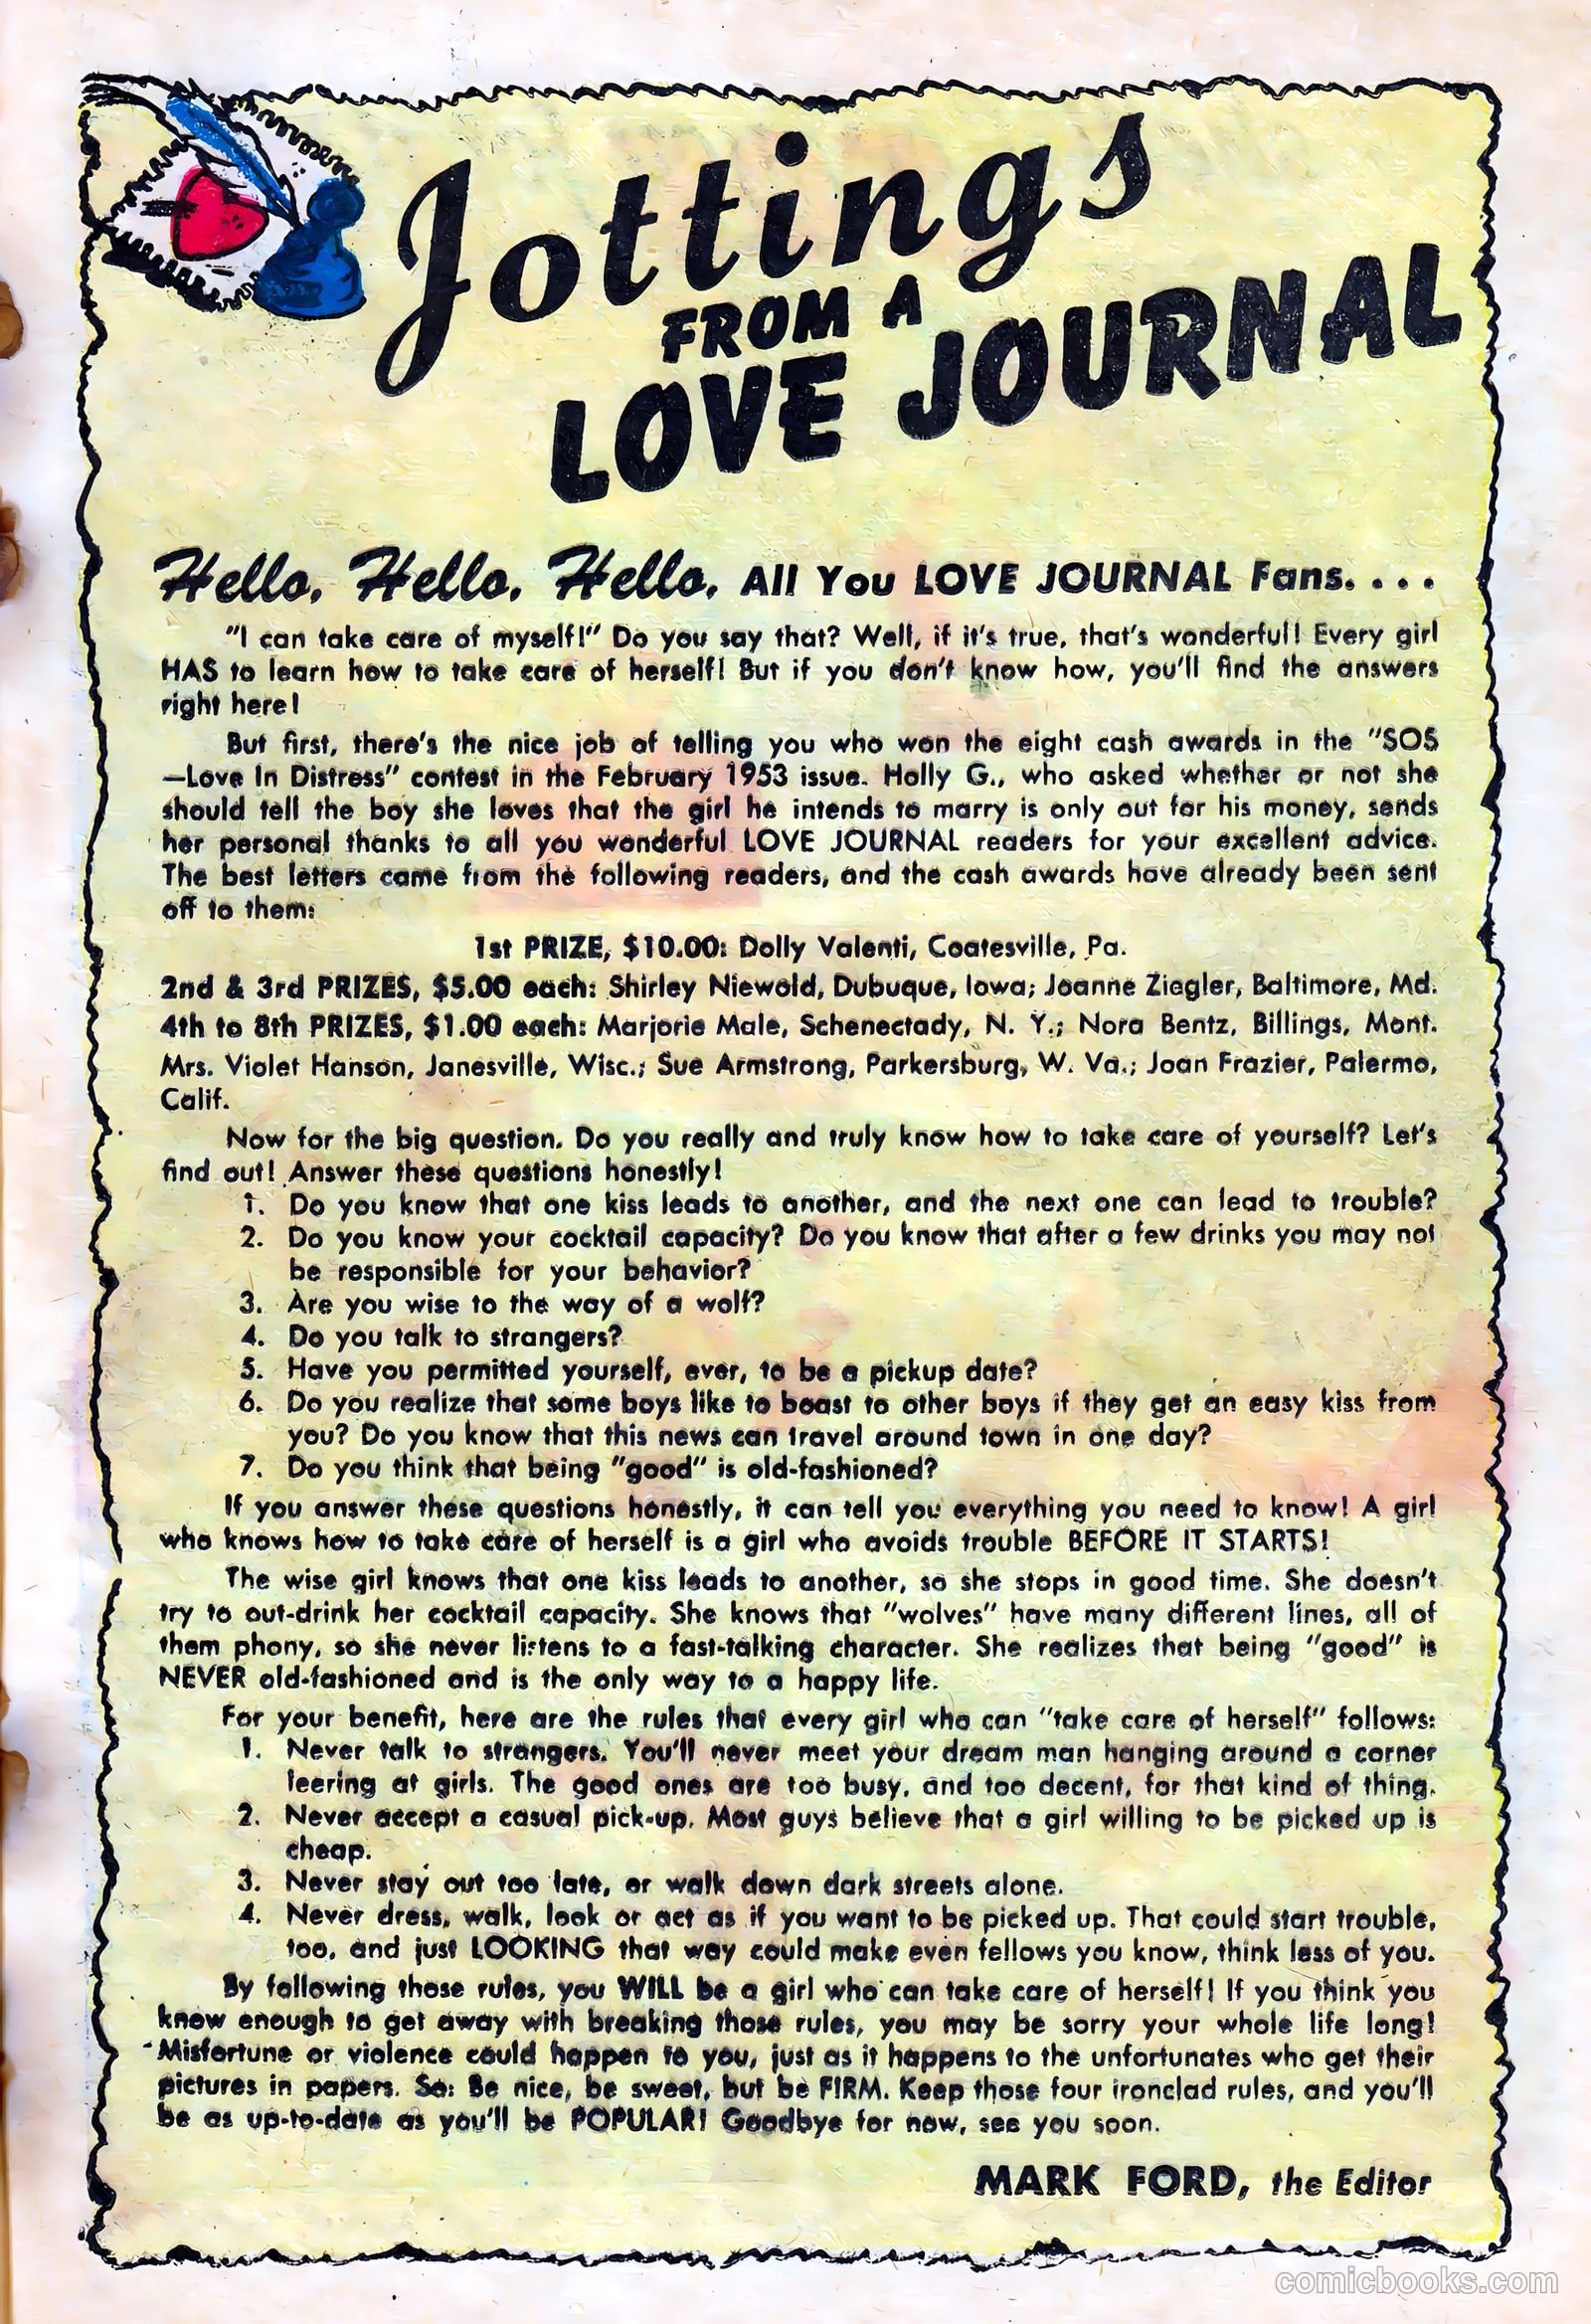 Jottings
FROM A
LOVE JOURNAL
Hello, Hello, Hello, All You LOVE JOURNAL Fans. . . .
"I can take care of myself!" Do you say that? Well, if it's true, that's wonderful! Every girl
HAS to learn how to take care of herself! But if you don't know how, you'll find the answers
right here!
But first, there's the nice job of telling you who won the eight cash awards in the "SOS
—Love In Distress" contest in the February 1953 issue. Holly G., who asked whether or not she
should tell the boy she loves that the girl he intends to marry is only out for his money, sends
her personal thanks to all you wonderful LOVE JOURNAL readers for your excellent advice.
The best letters came from the following readers, and the cash awards have already been sent
off to them:
1st PRIZE, $10.00: Dolly Valenti, Coatesville, Pa.
2nd & 3rd PRIZES, $5.00 each: Shirley Niewold, Dubuque, Iowa; Joanne Ziegler, Baltimore, Md.
4th to 8th PRIZES, $1.00 each: Marjorie Male, Schenectady, N. Y.; Nora Bentz, Billings, Mont.
Mrs. Violet Hanson, Janesville, Wisc.; Sue Armstrong, Parkersburg, W. Va.; Joan Frazier, Palermo,
Calif.
Now for the big question. Do you really and truly know how to take care of yourself? Let's
find out! Answer these questions honestly!
1. Do you know that one kiss leads to another, and the next one can lead to trouble?
2. Do you know your cocktail capacity? Do you know that after a few drinks you may not
be responsible for your behavior?
3. Are you wise to the way of a wolf?
4. Do you talk to strangers?
5. Have you permitted yourself, ever, to be a pickup date?
6. Do you realize that some boys like to boast to other boys if they get an easy kiss from
you? Do you know that this news can travel around town in one day?
7. Do you think that being "good" is old-fashioned?
If you answer these questions honestly, it can tell you everything you need to know! A girl
who knows how to take care of herself is a girl who avoids trouble BEFORE IT STARTS!
The wise girl knows that one kiss leads to another, so she stops in good time. She doesn't
try to out-drink her cocktail capacity. She knows that "wolves" have many different lines, all of
them phony, so she never listens to a fast-talking character. She realizes that being "good" is
NEVER old-fashioned and is the only way to a happy life.
For your benefit, here are the rules that every girl who can "take care of herself" follows:
1. Never talk to strangers. You'll never meet your dream man hanging around a corner
leering at girls. The good ones are too busy, and too decent, for that kind of thing.
2. Never accept a casual pick-up. Most guys believe that a girl willing to be picked up is
cheap.
3. Never stay out too late, or walk down dark streets alone.
4. Never dress, walk, look or act as if you want to be picked up. That could start trouble,
too, and just LOOKING that way could make even fellows you know, think less of you.
By following those rules, you WILL be a girl who can take care of herself! If you think you
know enough to get away with breaking those rules, you may be sorry your whole life long!
Misfortune or violence could happen to you, just as it happens to the unfortunates who get their
pictures in papers. So: Be nice, be sweet, but be FIRM. Keep those four ironclad rules, and you'll
be as up-to-date as you'll be POPULAR! Goodbye for now, see you soon.
MARK FORD, the Editor
comicbooks.com